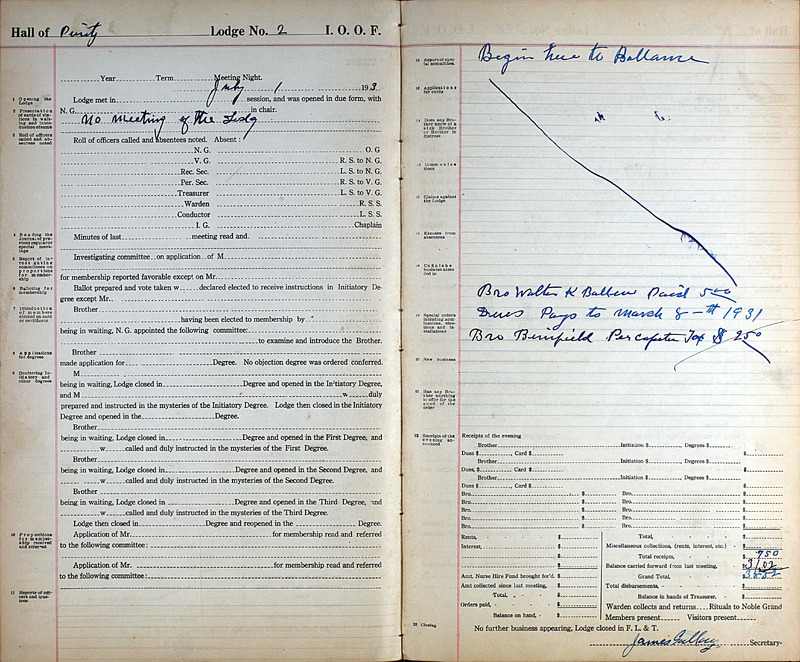 Hall of Purity Lodge No. 2 I. O. O. F.
Year Term Meeting Night.
July 1 193
1 Opening the Lodge
Lodge met in session, and was opened in due form, with
N. G. in chair.
No meeting of the Lodg
2 Presentation of cards of visitors in waiting and introduction of same
3 Roll of officers called and absentees noted
Roll of officers called and absentees noted. Absent:
N. G. O. G
V. G. R. S. to N. G.
Rec. Sec. L. S. to N. G.
Per. Sec. R. S. to V. G.
Treasurer L. S. to V. G.
Warden R. S. S.
Conductor L. S. S.
I. G. Chaplain
4 Reading the Journal of previous regular or special meetings
Minutes of last meeting read and
5 Report of interest gating committees on propositions for membership
Investigating committee on application of M
for membership reported favorable except on Mr.
6 Balloting for membership
Ballot prepared and vote taken w declared elected to receive instructions in Initiatory Degree except Mr.
7 Introduction of members elected on card or certificate
Brother
having been elected to membership by "
being in waiting, N. G. appointed the following committee:
to examine and introduce the Brother.
8 Applications for degrees
Brother
made application for Degree. No objection degree was ordered conferred.
9 Conferring Initiatory and other degrees
M
being in waiting, Lodge closed in Degree and opened in the Initiatory Degree,
and M w duly
prepared and instructed in the mysteries of the Initiatory Degree. Lodge then closed in the Initiatory
Degree and opened in the Degree.
Brother
being in waiting, Lodge closed in Degree and opened in the First Degree, and
w called and duly instructed in the mysteries of the First Degree.
Brother
being in waiting, Lodge closed in Degree and opened in the Second Degree, and
w called and duly instructed in the mysteries of the Second Degree.
Brother
being in waiting, Lodge closed in Degree and opened in the Third Degree, and
w called and duly instructed in the mysteries of the Third Degree.
Lodge then closed in Degree and reopened in the Degree.
10 Propositions for membership received and referred
Application of Mr. for membership read and referred
to the following committee:
Application of Mr. for membership read and referred
to the following committee:
11 Reports of officers and trustees
Begin here to Ballance
12 Report of special committees.
13 Applications for cards
14 Does any Brother know of a sick Brother or Brother in distress
15 Communications
16 Claims against the Lodge
17 Excuses from absentees
18 Unfinished business attended to
Bro Walter K Paid 5.00
Dues Pays to March 8-th 1931
19 Special orders including nominations, elections and installations
Bro Per capeter Tax $ 250
20 New business
21 Has any Brother anything to offer for the good of the order
22 Receipts of the evening announced
Receipts of the evening
Brother Initiation $ Degrees $
Dues $ Card $ $
Brother Initiation $ Degrees $
Dues, $ Card $ $
Brother Initiation $ Degrees $
Dues $ Card $ $
Bro. $ Bro. $
Bro. $ Bro. $
Bro. $ Bro. $
Bro. $ Bro. $
Bro. $ Bro. $
Rents, $ Total, $
Interest, $ Miscellaneous collections, (rents, interest, etc.) $
$ Total receipts, $ 750
$ Balance carried forward from last meeting, $ 3102
Amt. Nurse Hire Fund brought for'd. $ Grand Total, $ 3852
Amt collected since last meeting, $ Total disbursements, $
Total, $ Balance in hands of Treasurer, $
Orders paid, $ Warden collects and returns Rituals to Noble Grand
Balance on hand, $ Members present Visitors present
23 Closing
No further business appearing, Lodge closed in F. L. & T.
James Secretary.